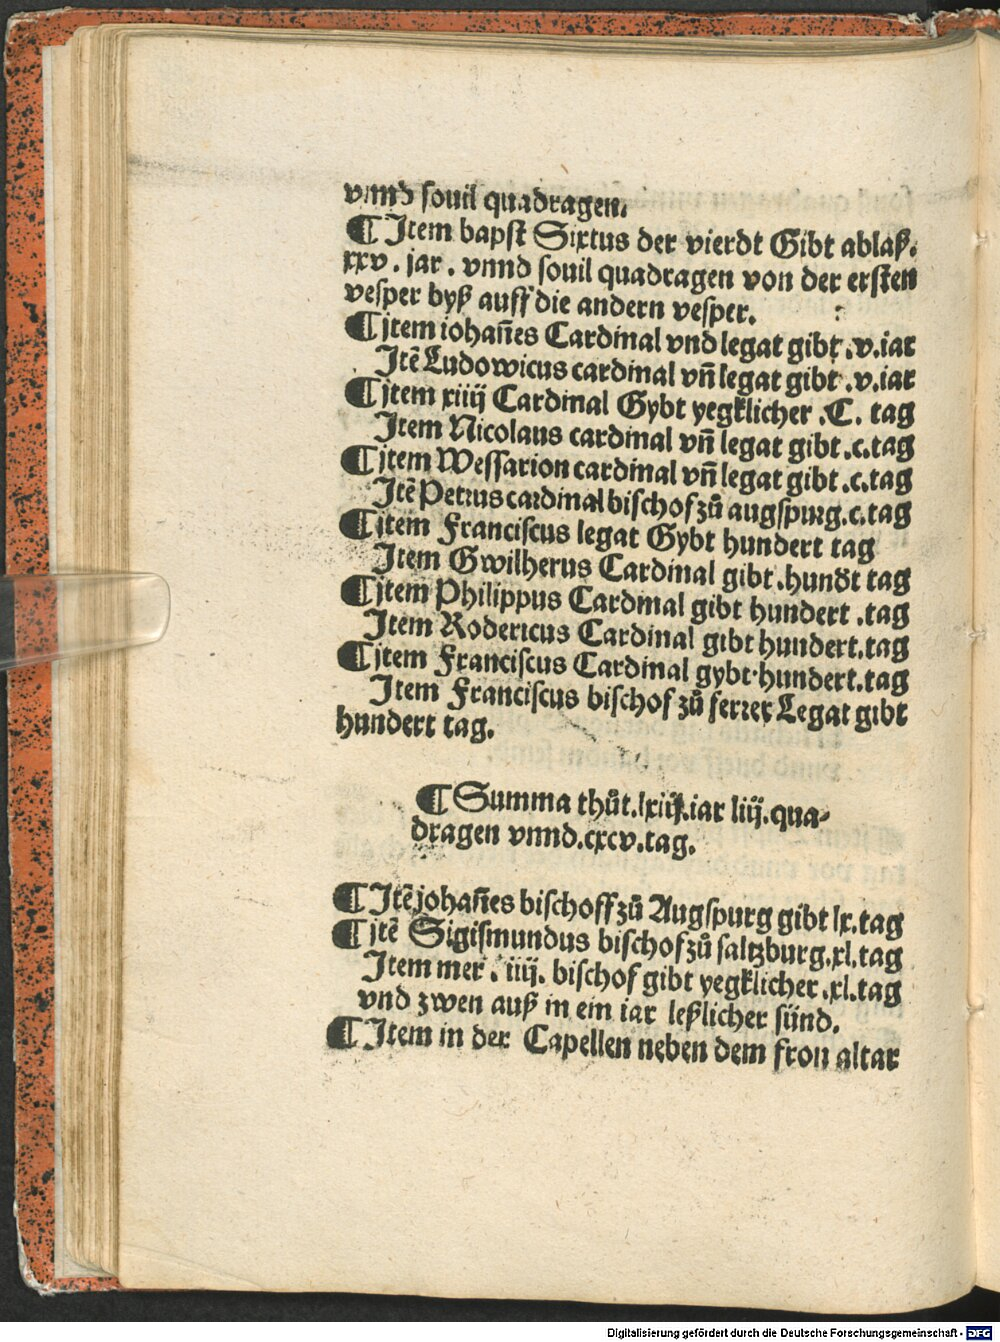 vnnd souil quadragen.
¶ Item bapst Sixtus der vierdt Gibt ablaß.
xxv. jar. vnnd souil quadragen von der ersten
vesper byß auff die andern vesper.
¶ jtem iohañes Cardinal vnd legat gibt .v. iar
Itē Ludowicus cardinal vñ legat gibt .v. iar
¶ jtem xiiij Cardinal Gybt yegklicher .C. tag
Item Nicolaus cardinal vñ legat gibt .c. tag
¶ jtem Wessarion cardinal vñ legat gibt .c. tag
Itē Petrus cardinal bischof zů augspurg .c. tag
¶ jtem Franciscus legat Gybt hundert tag
Item Gwilherus Cardinal gibt .hundt tag
¶ jtem Philippus Cardinal gibt hundert .tag
Item Rodericus Cardinal gibt hundert. tag
¶ jtem Franciscus Cardinal gybt hundert. tag
Item Franciscus bischof zů ferrer Legat gibt
hundert tag.
¶ Summa thůt .lxiiij. iar liij. qua-
dragen vnnd .cxcv. tag.
¶ Itē johañes bischoff zů Augspurg gibt lx. tag
¶ jtē Sigismundus bischof zů saltzburg .xl. tag
Item mer . iiij. bischof gibt yegklicher .xl. tag
vnd zwen auß in ein iar leßlicher sünd.
¶ Item in der Capellen neben dem fron altar
Digitalisierung gefördert durch die Deutsche Forschungsgemeinschaft - DFG